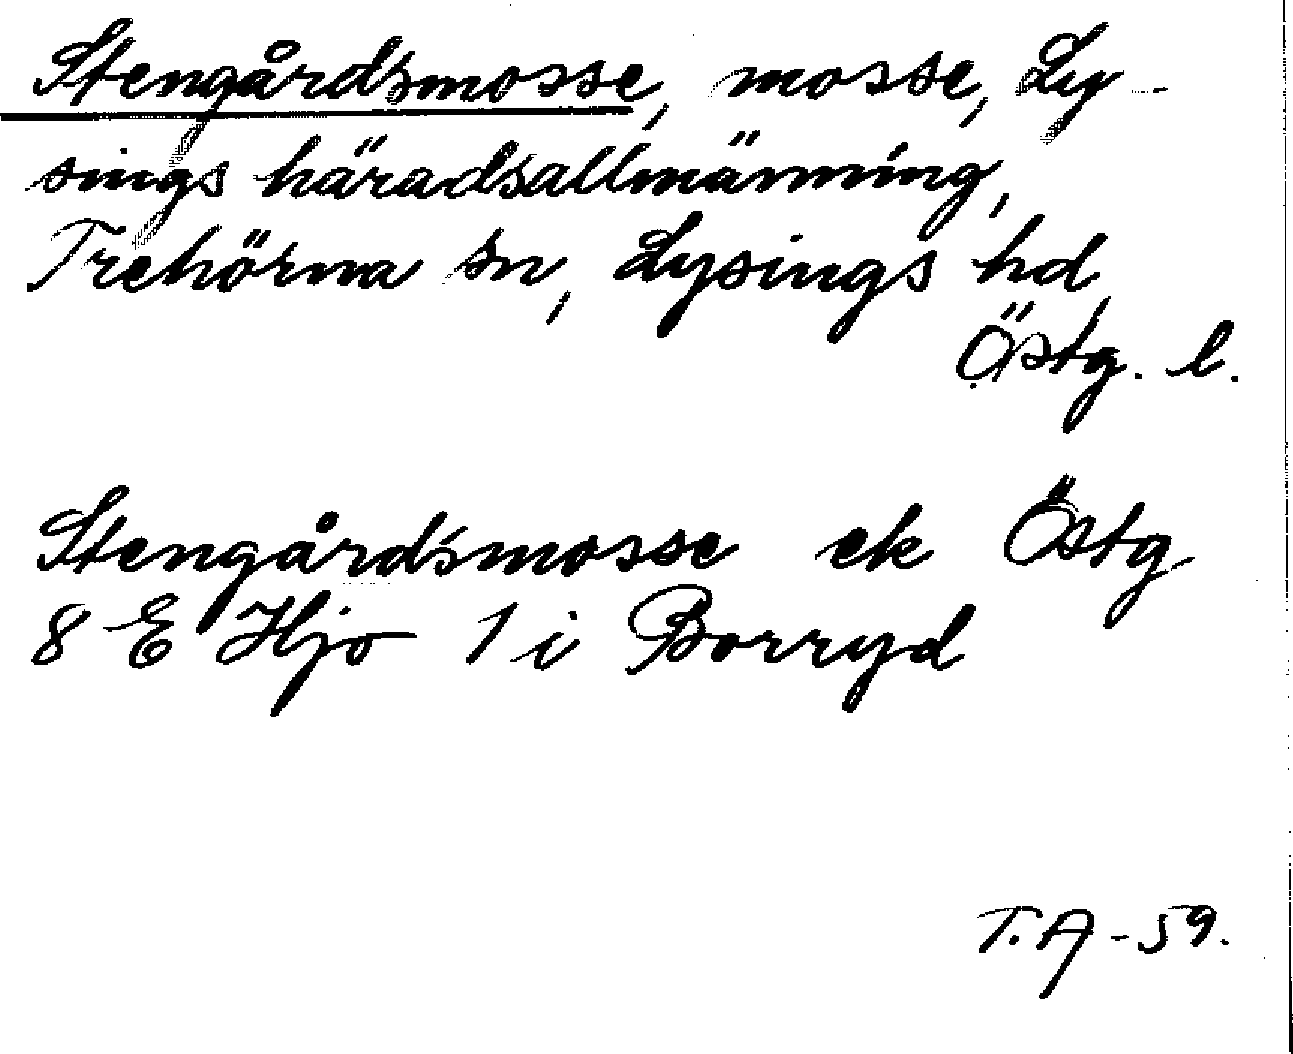 Stengårdsmosse, mosse, Ly-
sings häradsallmänning,
Trehörna sn, Lysings hd,
Östg. l.
Stengårdsmosse ek Östg
8 E Hjo 1 i Borryd
T.A -59.